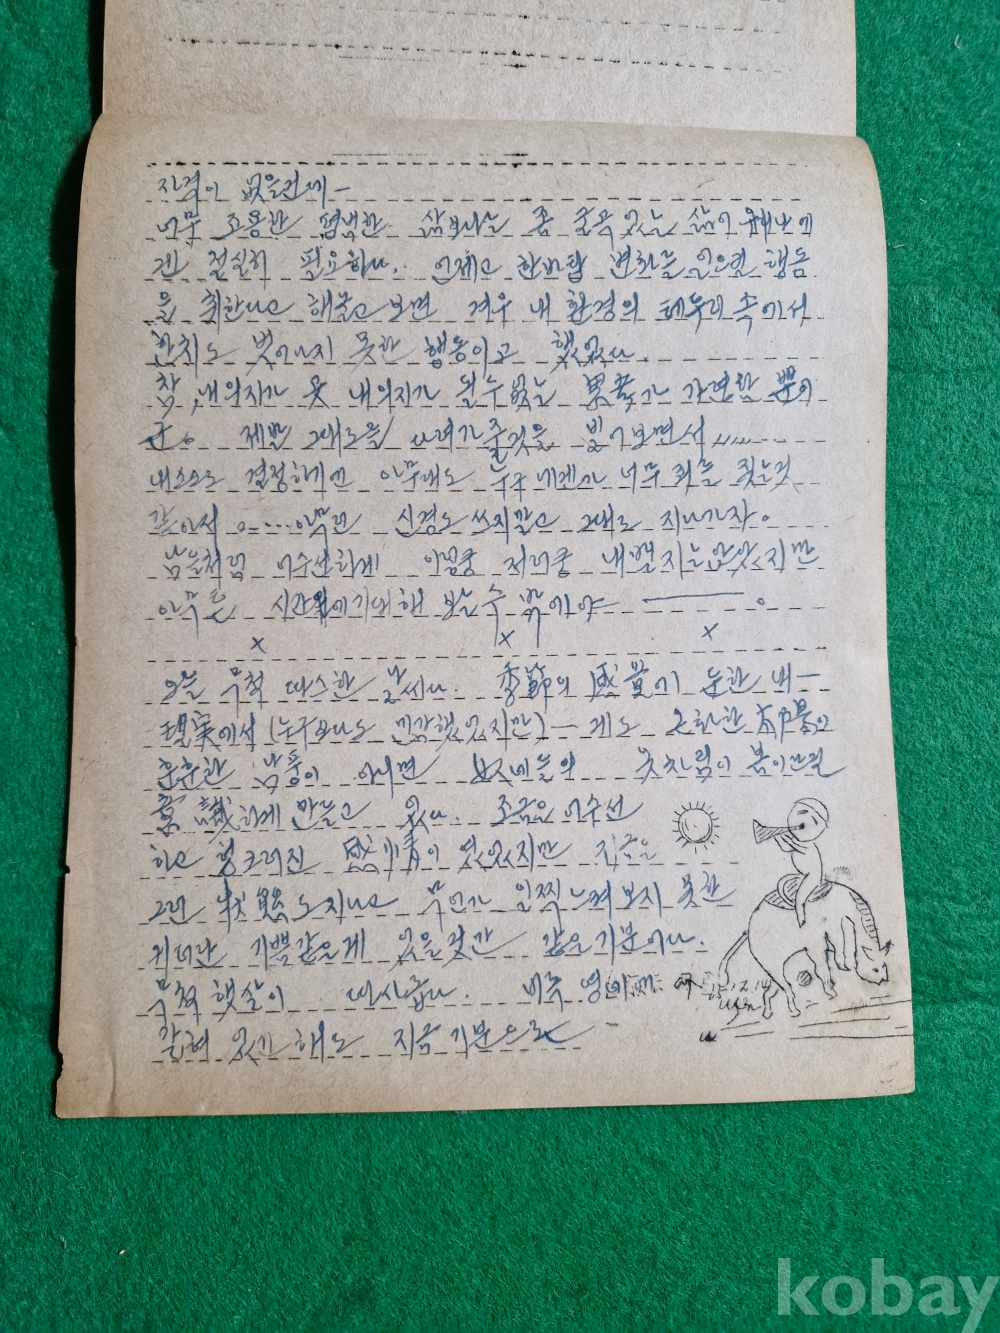 자격이 없을런지—
너무 조용한 평범한 삶보다는 좀 굴곡있는 삶이 해나에
겐 절실히 필요하다. 언제고 한바탕 변화를 일으킬 행동
을 취한다고 해놓고 보면 겨우 내 환경의 테두리 속에서
한치도 벗어나지 못한 행동이고 했었다.
참, 내 의지가 못 내 의지가 될 수 없는 思考가 가련할 뿐이
군. 제발 그대로를 다려가 줄것을 빌어보면서 〃〃...
내 스스로 결정하게엔 아무래도 누구에겐가 너무 죄를 짓는것
같아서 ....아무런 신경도 쓰지말고 그대로 지나가자.
남들처럼 어수선하게 이러쿵 저러쿵 내뱉지는 않았지만
아무튼 시간에 기대해 볼 수 밖에야— ———.
x x x
오늘 무척 따스한 날씨다. 季節의 感覚이 둔한 내—
現実에서 (누구보다도 민감했었지만)— 게도 온화한 太陽과
훈훈한 남풍이 아니면 女人네들의 옷차림이 봄이란걸
意識하게 만들고 있다. 조금은 어수선
하고 헝크러진 感情이 있었지만 지금은
그런 状態도 지나고 무언가 일찍 느껴보지 못한
커다란 기쁨같은게 있을것만 같은 기분이다.
무척 햇살이 따사롭다. 비록
갇혀 있긴 해도 지금 기분으로
kobay